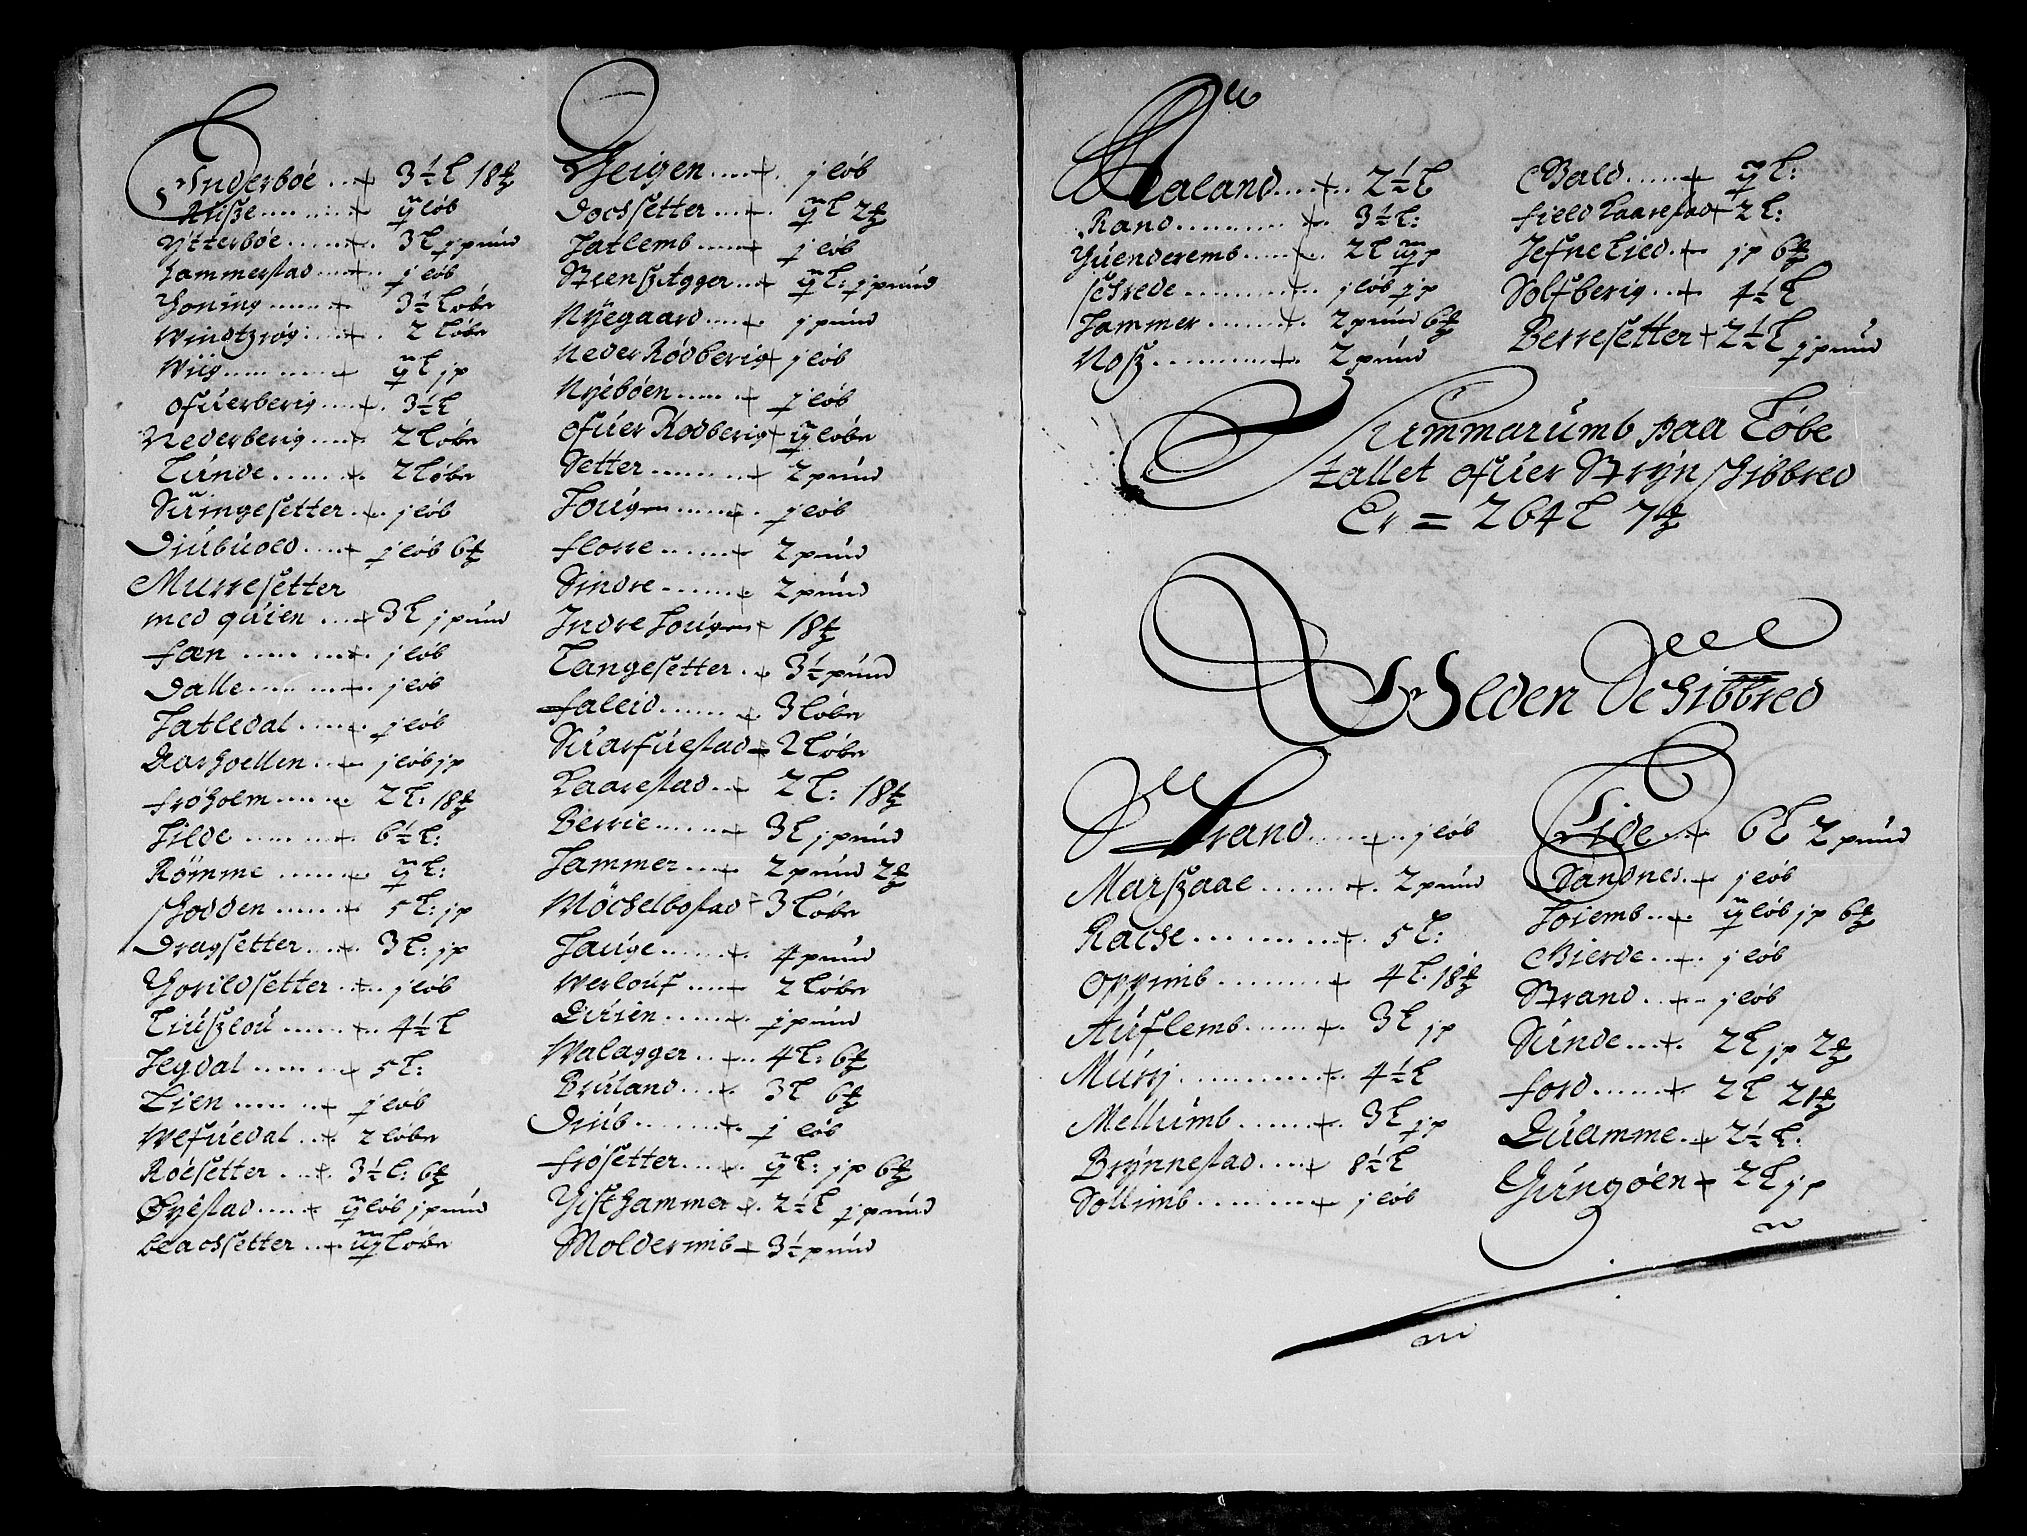 Inderbøe ... + 3½ L 18 ℔
Risze ....... + ij løb
Ytterbøe ...... + 3 L j pund
Hammerstad ... + j løb
Honing ...... + 3½ Løber
Windtzrög ... + 2 Løber
Wiig ....... + ij L j p
ofuerberig ... + 3½ L
Nederberig ... + 2 Løber
Lunde ...... + 2 Løber
Süringesetter .. + j løb
Diubuold ... + j løb 6 ℔
Murresetter
med quien ... + 3 L j pund
fæn ...... + j løb
Dalle ...... + j løb
Hatledal ... + j løb
Roshoellen .. + j løb j p
frøholm ..... 2 L: 18 ℔
Hilde ...... + 6½ L:
Römme ...... + ij L:
Hodden ..... + 5 L: j p
Dragsetter ... + 3 L: j p
Horildsetter .. + j løb
Liuszlou ..... + 4½ L
Hegdal ...... + 5 L:
Lien ...... + j løb
Wefuedal ... + 2 løber
Röesetter ... + 3½ L: 6 ℔
Øyestad ..... + ij løb j pund
bleacssetter ... + iij Løber
Heigen .... + j løb
Docssetter ... + ij L 2 ℔
Hatlemb ..... + j løb
Steenszagger .. + ij L: j pund
Nyegaard .... + j pund
Neder Rödberig + j løb
Nyebøen ..... + j løb
ofuer Rödberig + ij løber
Setter ....... + 2 pund
Hougen ..... + j løb
florre ...... + 2 pund
Sindre ...... + 2 pund
Indre Hougen + 18 ℔
Langesetter .. + 3½ pund
faleid ...... + 3 løber
Suarfuestad + 2 løber
Kaarestad ... + 2 L: 18 ℔
Berrie ...... + 3 L j pund
Hammer ... + 2 pund 2 ℔
Möchelbostad + 3 Løber
Hauge ...... + 4 pund
Werlouf .... + 2 Løber
Quien ...... + j pund
Walagger ... + 4 L: 6 ℔
Bruland ... + 3 L 6 ℔
Diub ....... + j løb
frösetter .... + ij L: j p 6 ℔
Gisthammer + 2½ L j pund
Molderimb + 3½ pund
Aaland .... + 2½ L
Rand ......... + 3½ L:
Guenderemb ..... + 2 L iij p
schrede ......... + j løb j p
Hammer ....... + 2 pund 6 ℔
Nosz .......... + 2 pund
Bald ...... + ij L:
field Kaarestad + 2 L:
Hefne Lied .. + j p 6 ℔
Solfberig .. + 4½ L
Berresetter + 2½ L j pund
Summarumb paa Løbe
tallet ofuer Stryn schibbred
Er = 264 L 7 ℔
Gloden Schibbred
Strand ...... + j løb
Marszaae ...... + 2 pund
Rache ......... + 5 L:
Oppimb ....... + 4 L: 18 ℔
Auflemb ...... + 3 L j p
Murj ........... + 4½ L
Mellumb ...... + 3 L j p
Brynnestad .... + 8½ L
Sollimb ....... + j løb
Eide .. + 6 L 2 pund
Sandnes .. + j løb
Hoiemb ... + ij løb j p 6 ℔
Bierde ... + j løb
Strand ... + j løb
Sunde .... + 2 L j p 2 ℔
ford ...... + 2 L 21 ℔
Quamme .. + 2½ L:
Gungøen + 2 L j p